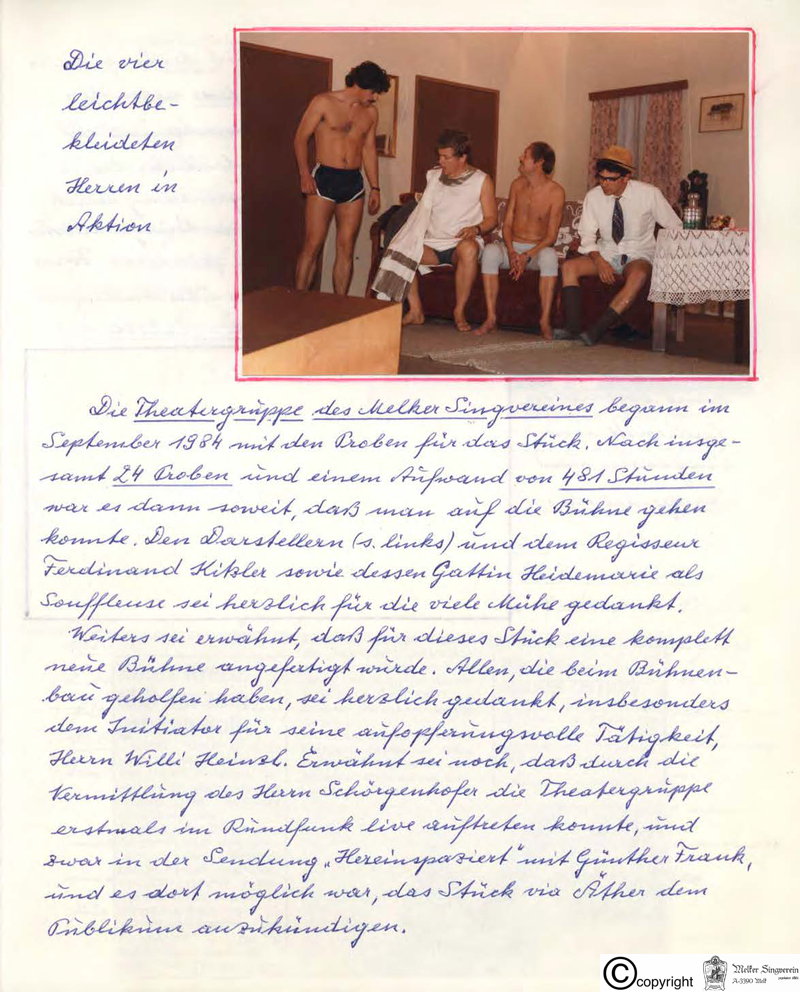 Die vier
leichtbe-
kleideten
Herren in
Aktion
Die Theatergruppe des Melker Singvereines begann im
September 1984 mit den Proben für das Stück. Nach insge-
samt 24 Proben und einem Aufwand von 481 Stunden
war es dann soweit, daß man auf die Bühne gehen
konnte. Den Darstellern (s. links) und dem Regisseur
Ferdinand Kitzler sowie dessen Gattin Heidemarie als
Souffleuse sei herzlich für die viele Mühe gedankt.
Weiters sei erwähnt, daß für dieses Stück eine komplett
neue Bühne angefertigt wurde. Allen, die beim Bühnen-
bau geholfen haben, sei herzlich gedankt, insbesonders
dem Initiator für seine aufopferungsvolle Tätigkeit,
Herrn Willi Heinzl. Erwähnt sei noch, daß durch die
Vermittlung des Herrn Schörgenhofer die Theatergruppe
erstmals im Rundfunk live auftreten konnte, und
zwar in der Sendung „Hereinspaziert" mit Günther Frank,
und es dort möglich war, das Stück via Äther dem
Publikum anzukündigen.
© copyright Melker Singverein
A-3390 Melk